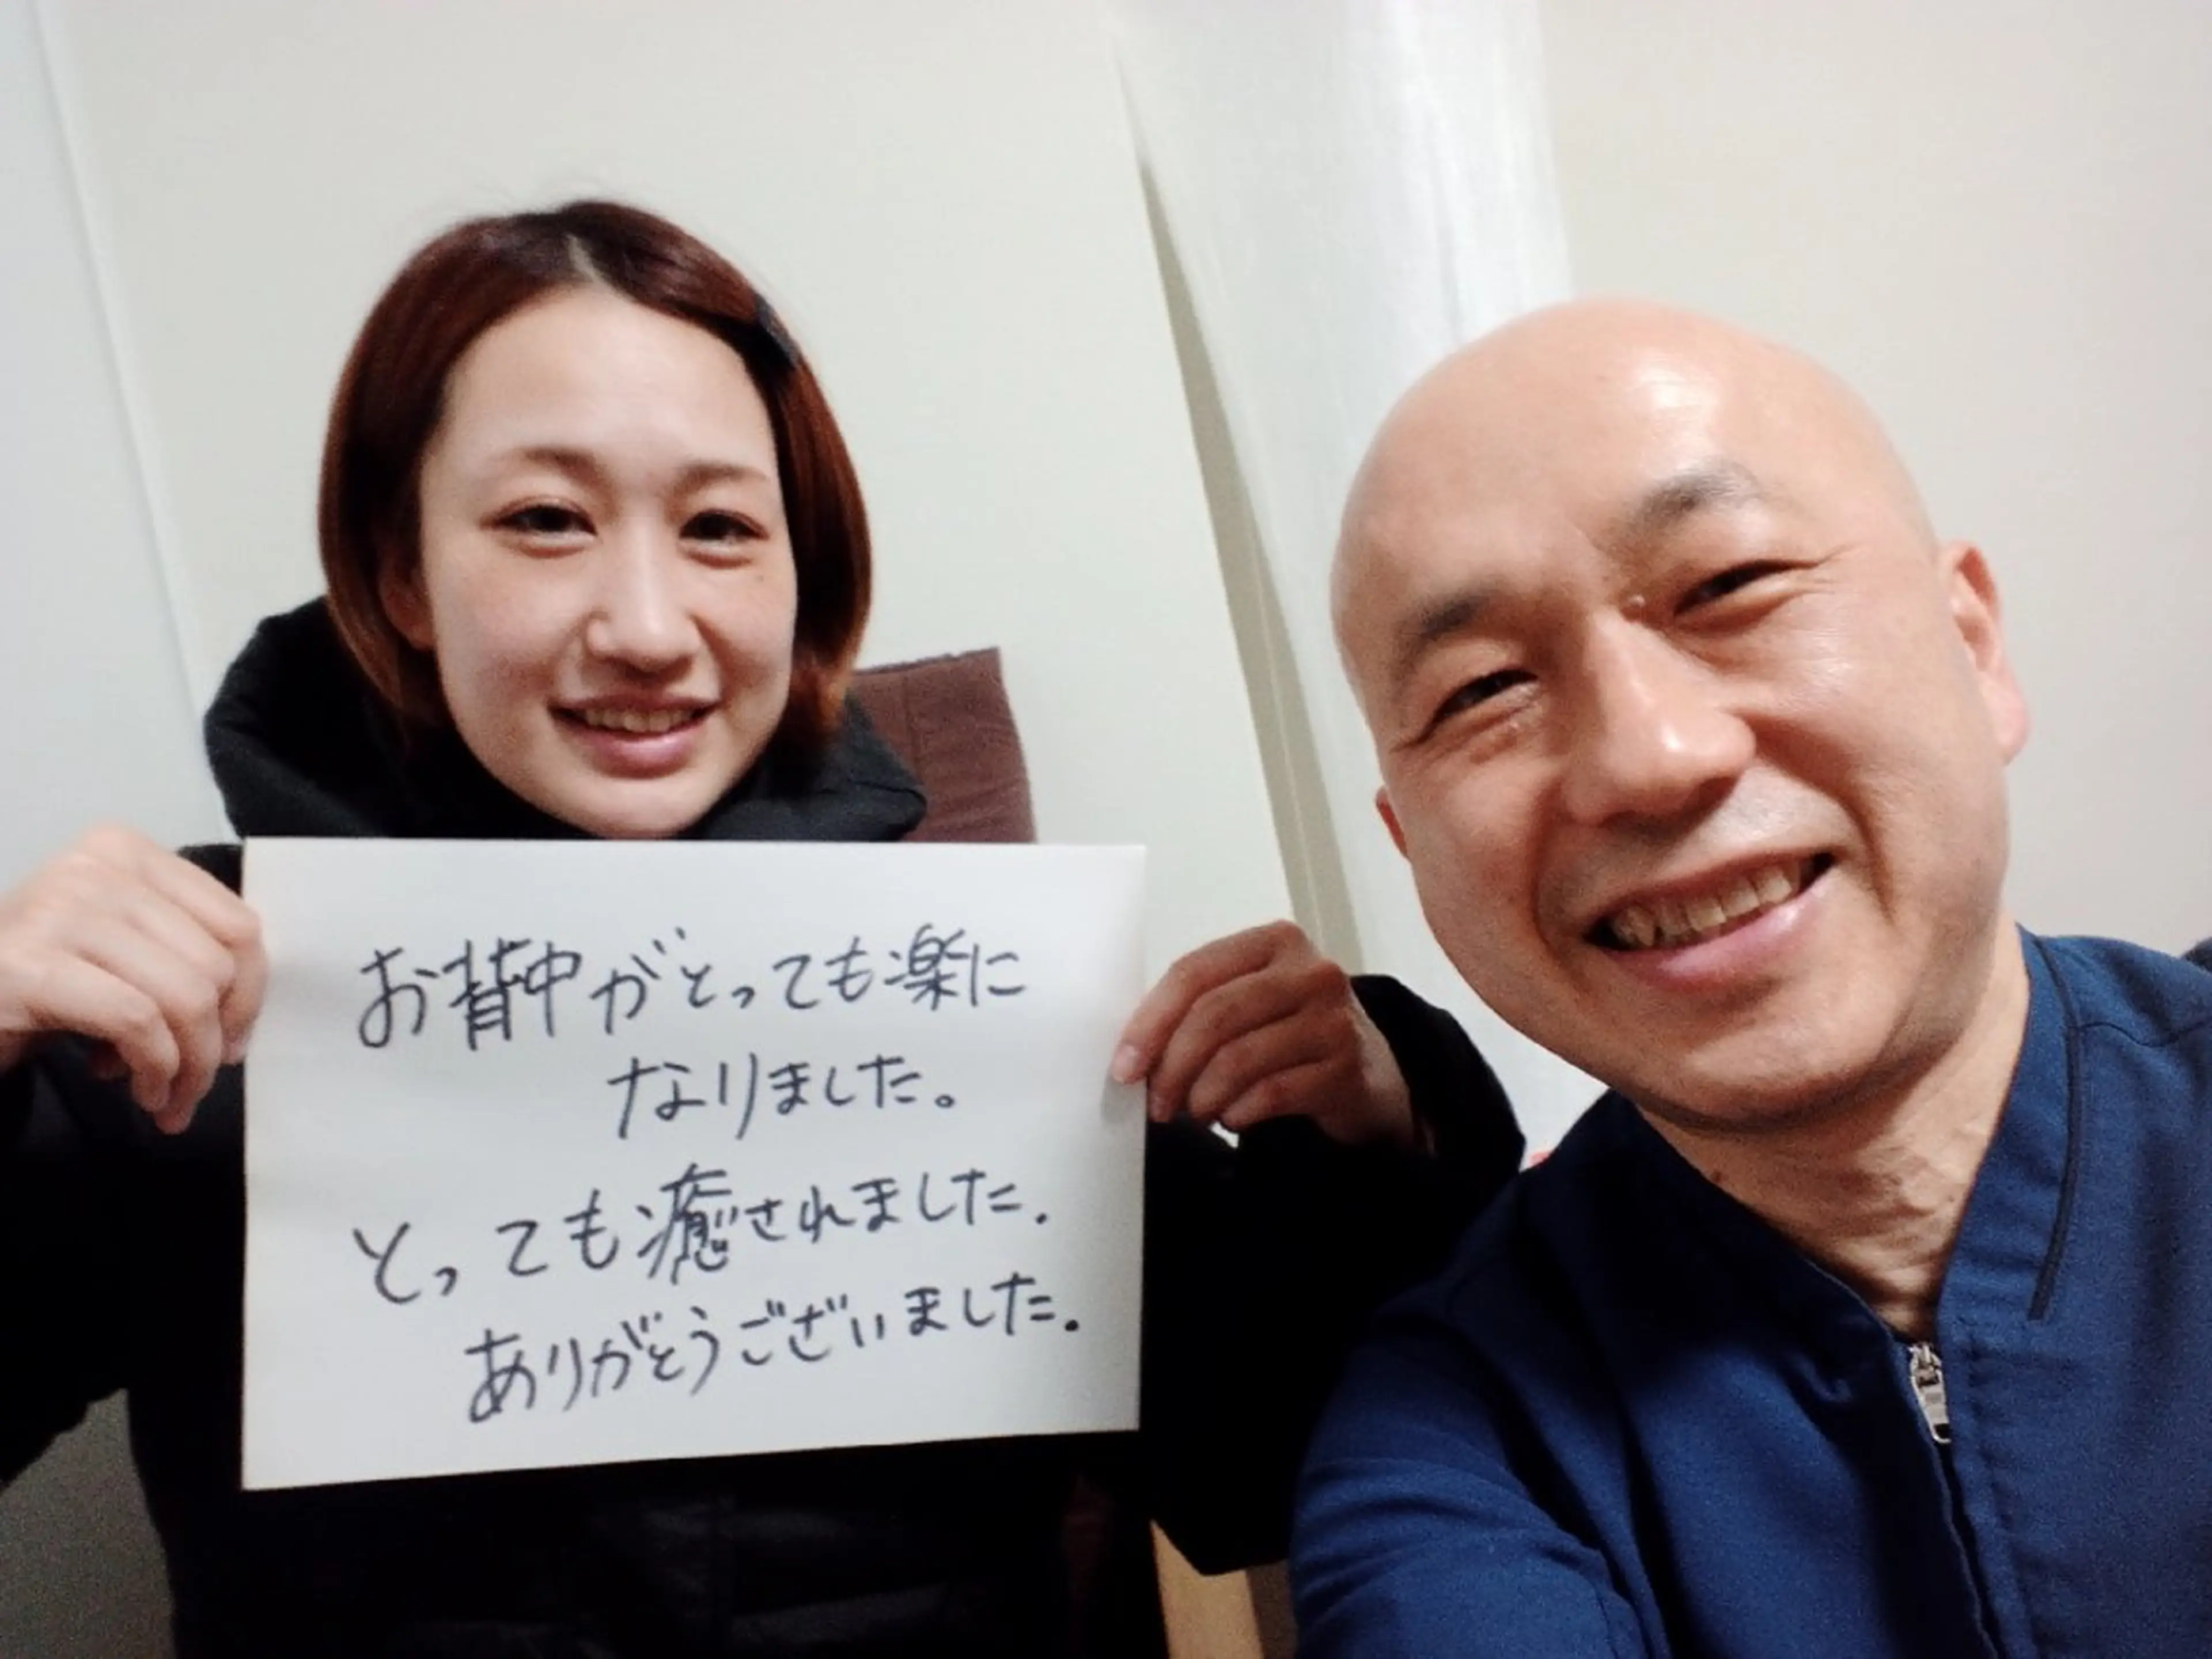 お背中がとっても楽に
なりました。
とっても癒されました.
ありがとうございました.